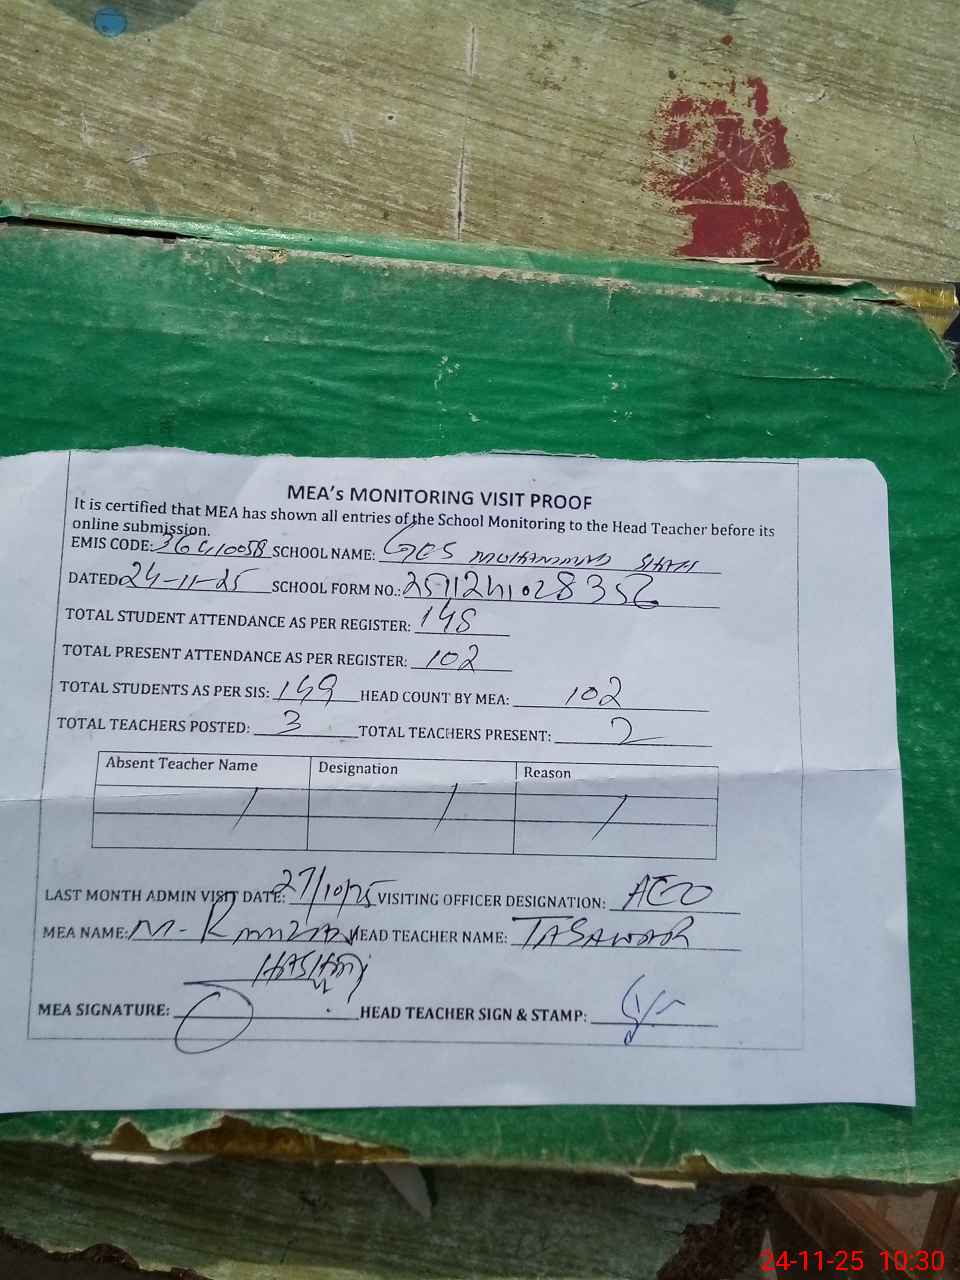 MEA's MONITORING VISIT PROOF
It is certified that MEA has shown all entries of the School Monitoring to the Head Teacher before its
online submission.
EMIS CODE: SCHOOL NAME: GES MUHAMMAD SHAH
DATED 24-11-25 SCHOOL FORM NO.:
TOTAL STUDENT ATTENDANCE AS PER REGISTER:
TOTAL PRESENT ATTENDANCE AS PER REGISTER: 102
TOTAL STUDENTS AS PER SIS: 149 HEAD COUNT BY MEA: 102
TOTAL TEACHERS POSTED: 3 TOTAL TEACHERS PRESENT: 2
Absent Teacher Name Designation Reason
/ / /
LAST MONTH ADMIN VISIT DATE: 27/10/25 VISITING OFFICER DESIGNATION: AEO
MEA NAME: M- HEAD TEACHER NAME: TASAWAR
MEA SIGNATURE: HEAD TEACHER SIGN & STAMP:
24-11-25 10:30